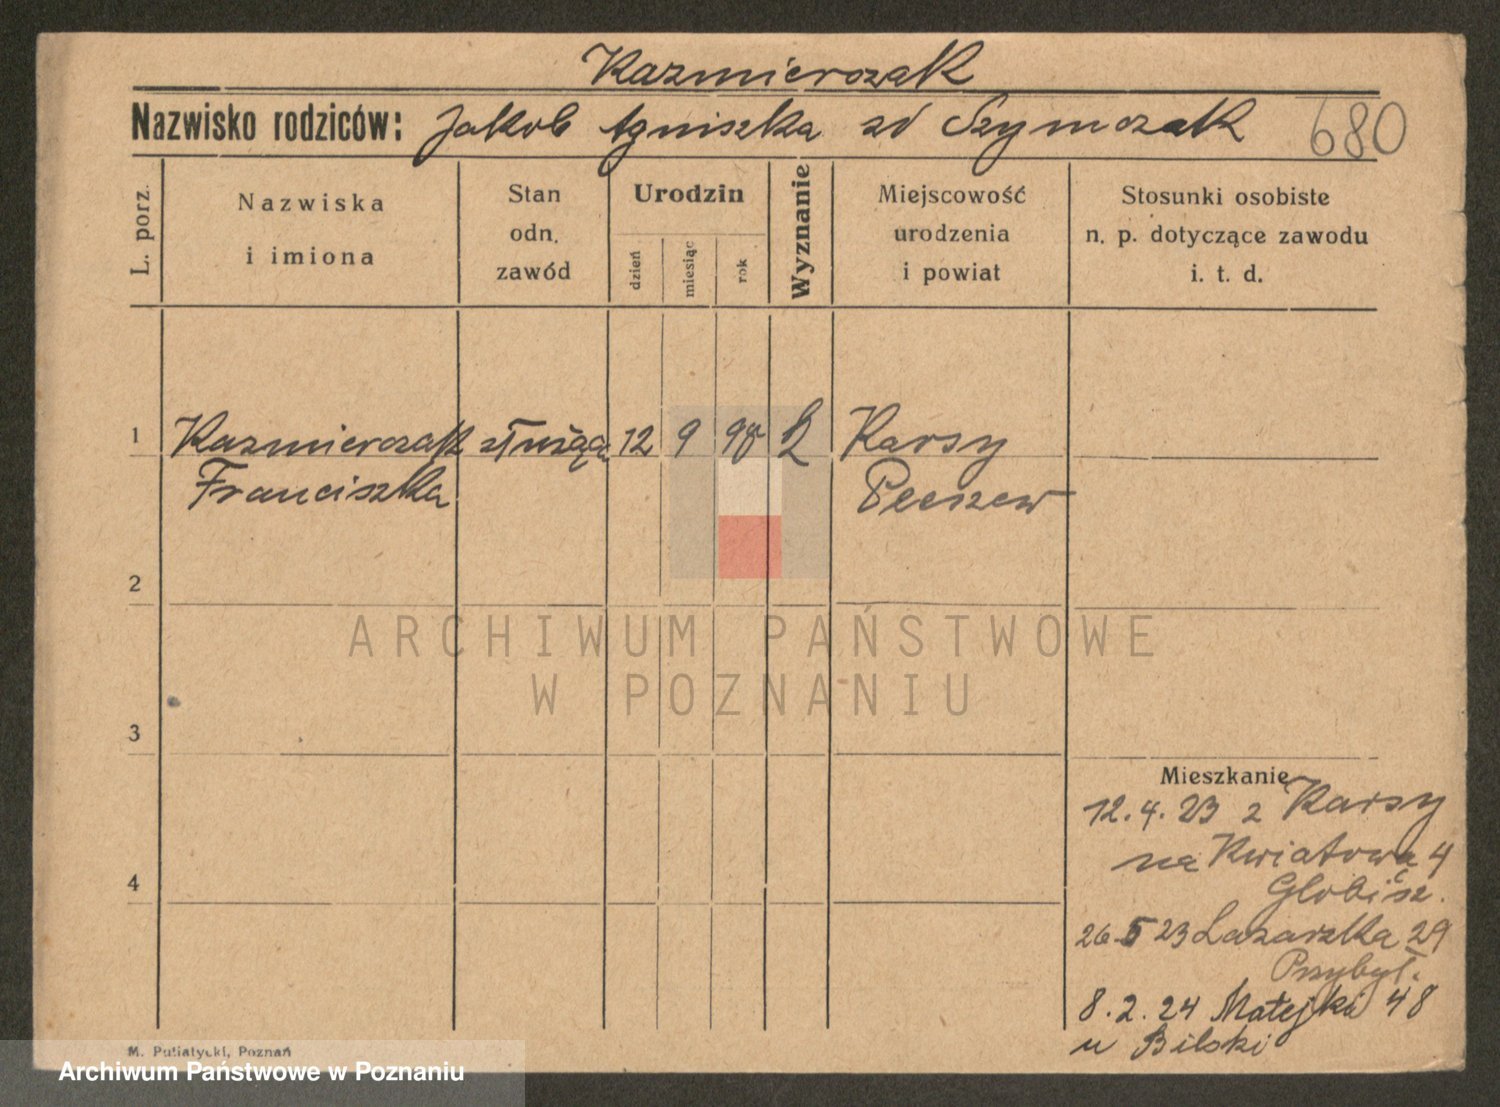 Kazmierczak
Nazwisko rodziców: Jakob Agniszka zd Szymczak 680
L. porz.
Nazwiska
i imiona
Stan
odn.
zawód
Urodzin
dzień
miesiąc
rok
Wyznanie
Miejscowość
urodzenia
i powiat
Stosunki osobiste
n. p. dotyczące zawodu
i. t. d.
1 Kazmierczak służąca 12 9 98 Karsy
Franciszka Pleszew
2
ARCHIWUM PAŃSTWOWE
W POZNANIU
3
Mieszkanie
12.4.23 z Karsy
na Kwiatową 4
4
Globisz.
26.5 23 Lazarzka 29
Przybył.
8.2.24 Matejki 48
u Bilski
M. Putiatycki, Poznań
Archiwum Państwowe w Poznaniu